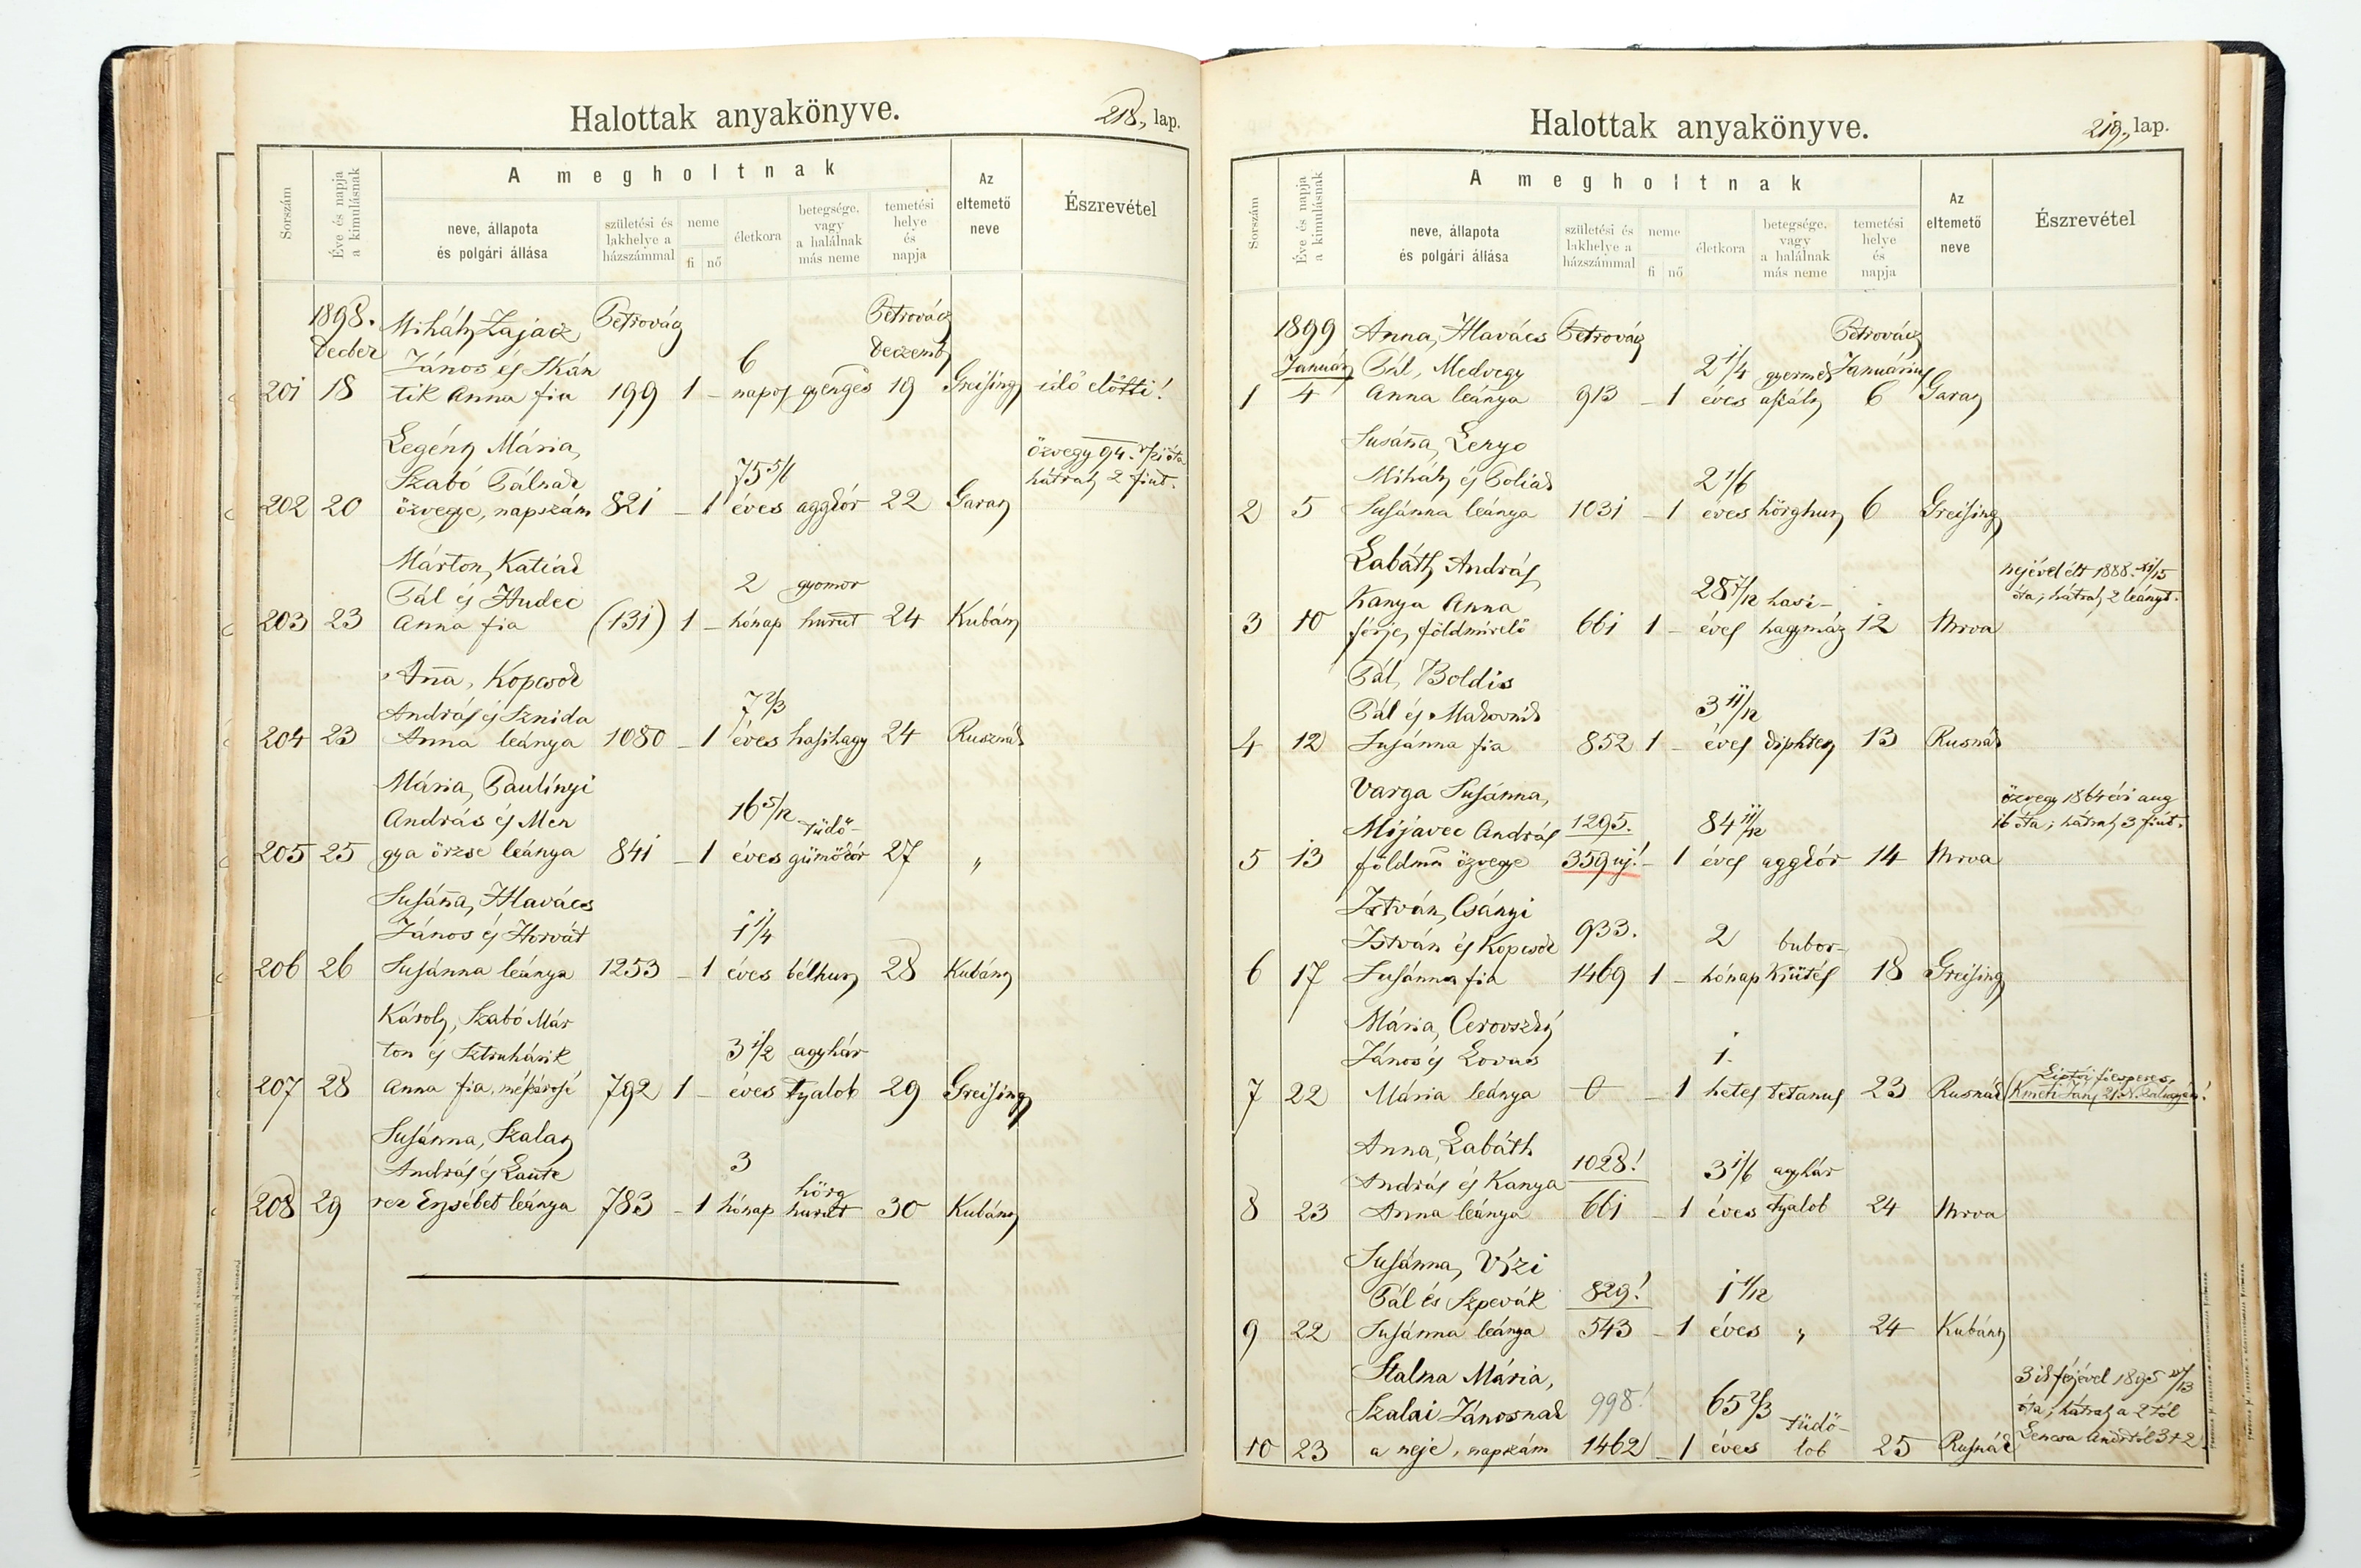 Halottak anyakönyve.
218., lap.
Sorszám
Éve és napja
a kimulásnak
A megholtnak
neve, állapota
és polgári állása
születési és
lakhelye a
házszámmal
neme
fi nő
életkora
betegsége,
vagy
a halálnak
más neme
temetési
helye
és
napja
Az
eltemető
neve
Észrevétel
1898. Mihály Zajacz Petrovácz Petrovácz
Decber János és Skán 6 Deczemb
201 18 tik Anna fia 199 1 – napos gyenges 19 Greising idő előtti!
Legény Mária,
Szabó Pálnak 75 5/6 hátrah 2 fiut.
202 20 özvegye, napszám 821 – 1 éves aggkór 22 Garay
Márton, Katiak
Pál és Hudec 2 gyomor
203 23 Anna fia (131) 1 – hónap hurut 24 Kubány
Anna, Kopcsok
András és Sznida 7 2/3
204 23 Anna leánya 1080 – 1 éves hasihagy 24 Rusznák
Mária, Paulinyi
András és Men 16 5/12 tüdő-
205 25 gya örzse leánya 841 – 1 éves gümőkór 27 „
Susánna, Hlavács
János és Horvát 1 1/4
206 26 Susánna leánya 1253 – 1 éves bélhur 28 Kubány
Károly, Szabó Már
ton és Sztruhárik 3 1/2 agyhár
207 28 Anna fia, 792 1 – éves tyalob 29 Greising
Susánna, Szalay
András és Laute 3 hörg
208 29 rer Erzsébet leánya 783 – 1 hónap hurut 30 Kubány
Halottak anyakönyve.
219., lap.
Sorszám
Éve és napja
a kimulásnak
A megholtnak
neve, állapota
és polgári állása
születési és
lakhelye a
házszámmal
neme
fi nő
életkora
betegsége,
vagy
a halálnak
más neme
temetési
helye
és
napja
Az
eltemető
neve
Észrevétel
1899 Anna, Hlavács Petrovácz Petrovácz
Január Pál, Medvegy 2 1/4 gyermek Januárius
1 4 Anna leánya 913 – 1 éves aszály 6 Garay
Susánna, Lenyo
Mihály és Poliak 2 1/6
2 5 Susánna leánya 1031 – 1 éves hörghur 6 Greising
Labáth András, nejével élt 1888. XI/15
Kanya Anna 28 7/12 hasi- óta; hátrah 2 leányt.
3 10 férje, földmívelő 661 1 – éves hagymáz 12 Mrva
Pál, Boldis
Pál és Makovnik 3 11/12
4 12 Susánna fia 852 1 – éves diphter 13 Rusnák
Varga Susánna, özvegy 1864 évi aug
Mijavec András 1295. 84 11/12 16 óta; hátrah 3 fiut.
5 13 földmű özvegye 359 uj! – 1 éves aggkór 14 Mrva
István, Csányi
István és Kopcsok 933. 2 bubor-
6 17 Susánna fia 1469 1 – hónap kiütés 18 Greising
Mária, Cerovszky
János és Lovas 1.
7 22 Mária leánya 0 – 1 hetes tetanus 23 Rusnák
Anna, Labáth
András és Kanya 1028! 3 1/6 agyhár
8 23 Anna leánya 661 – 1 éves tyalob 24 Mrva
Susánna, Vízi
Pál és Szpevák 829! 1 1/12
9 22 Susánna leánya 543 – 1 éves „ 24 Kubány
Stalma Mária,
Szalai Jánosnak 998! 65 2/3 tüdő- óta; hátrah a 2 tól
10 23 a neje, napszám 1462 – 1 éves lob 25 Rusnák